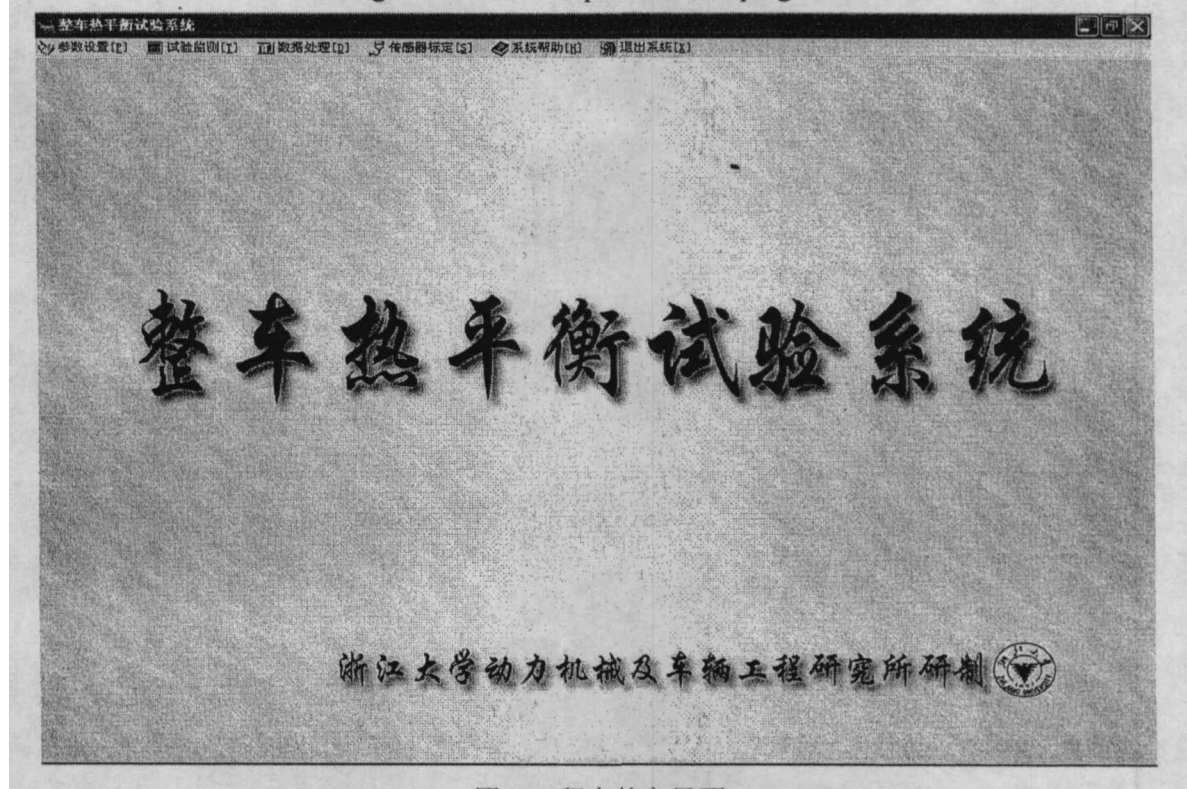 整车热平衡试验系统
参数设置[P] 试验监测[T] 数据处理[D] 传感器标定[S] 系统帮助[H] 退出系统[X]
整车热平衡试验系统
浙江大学动力机械及车辆工程研究所研制